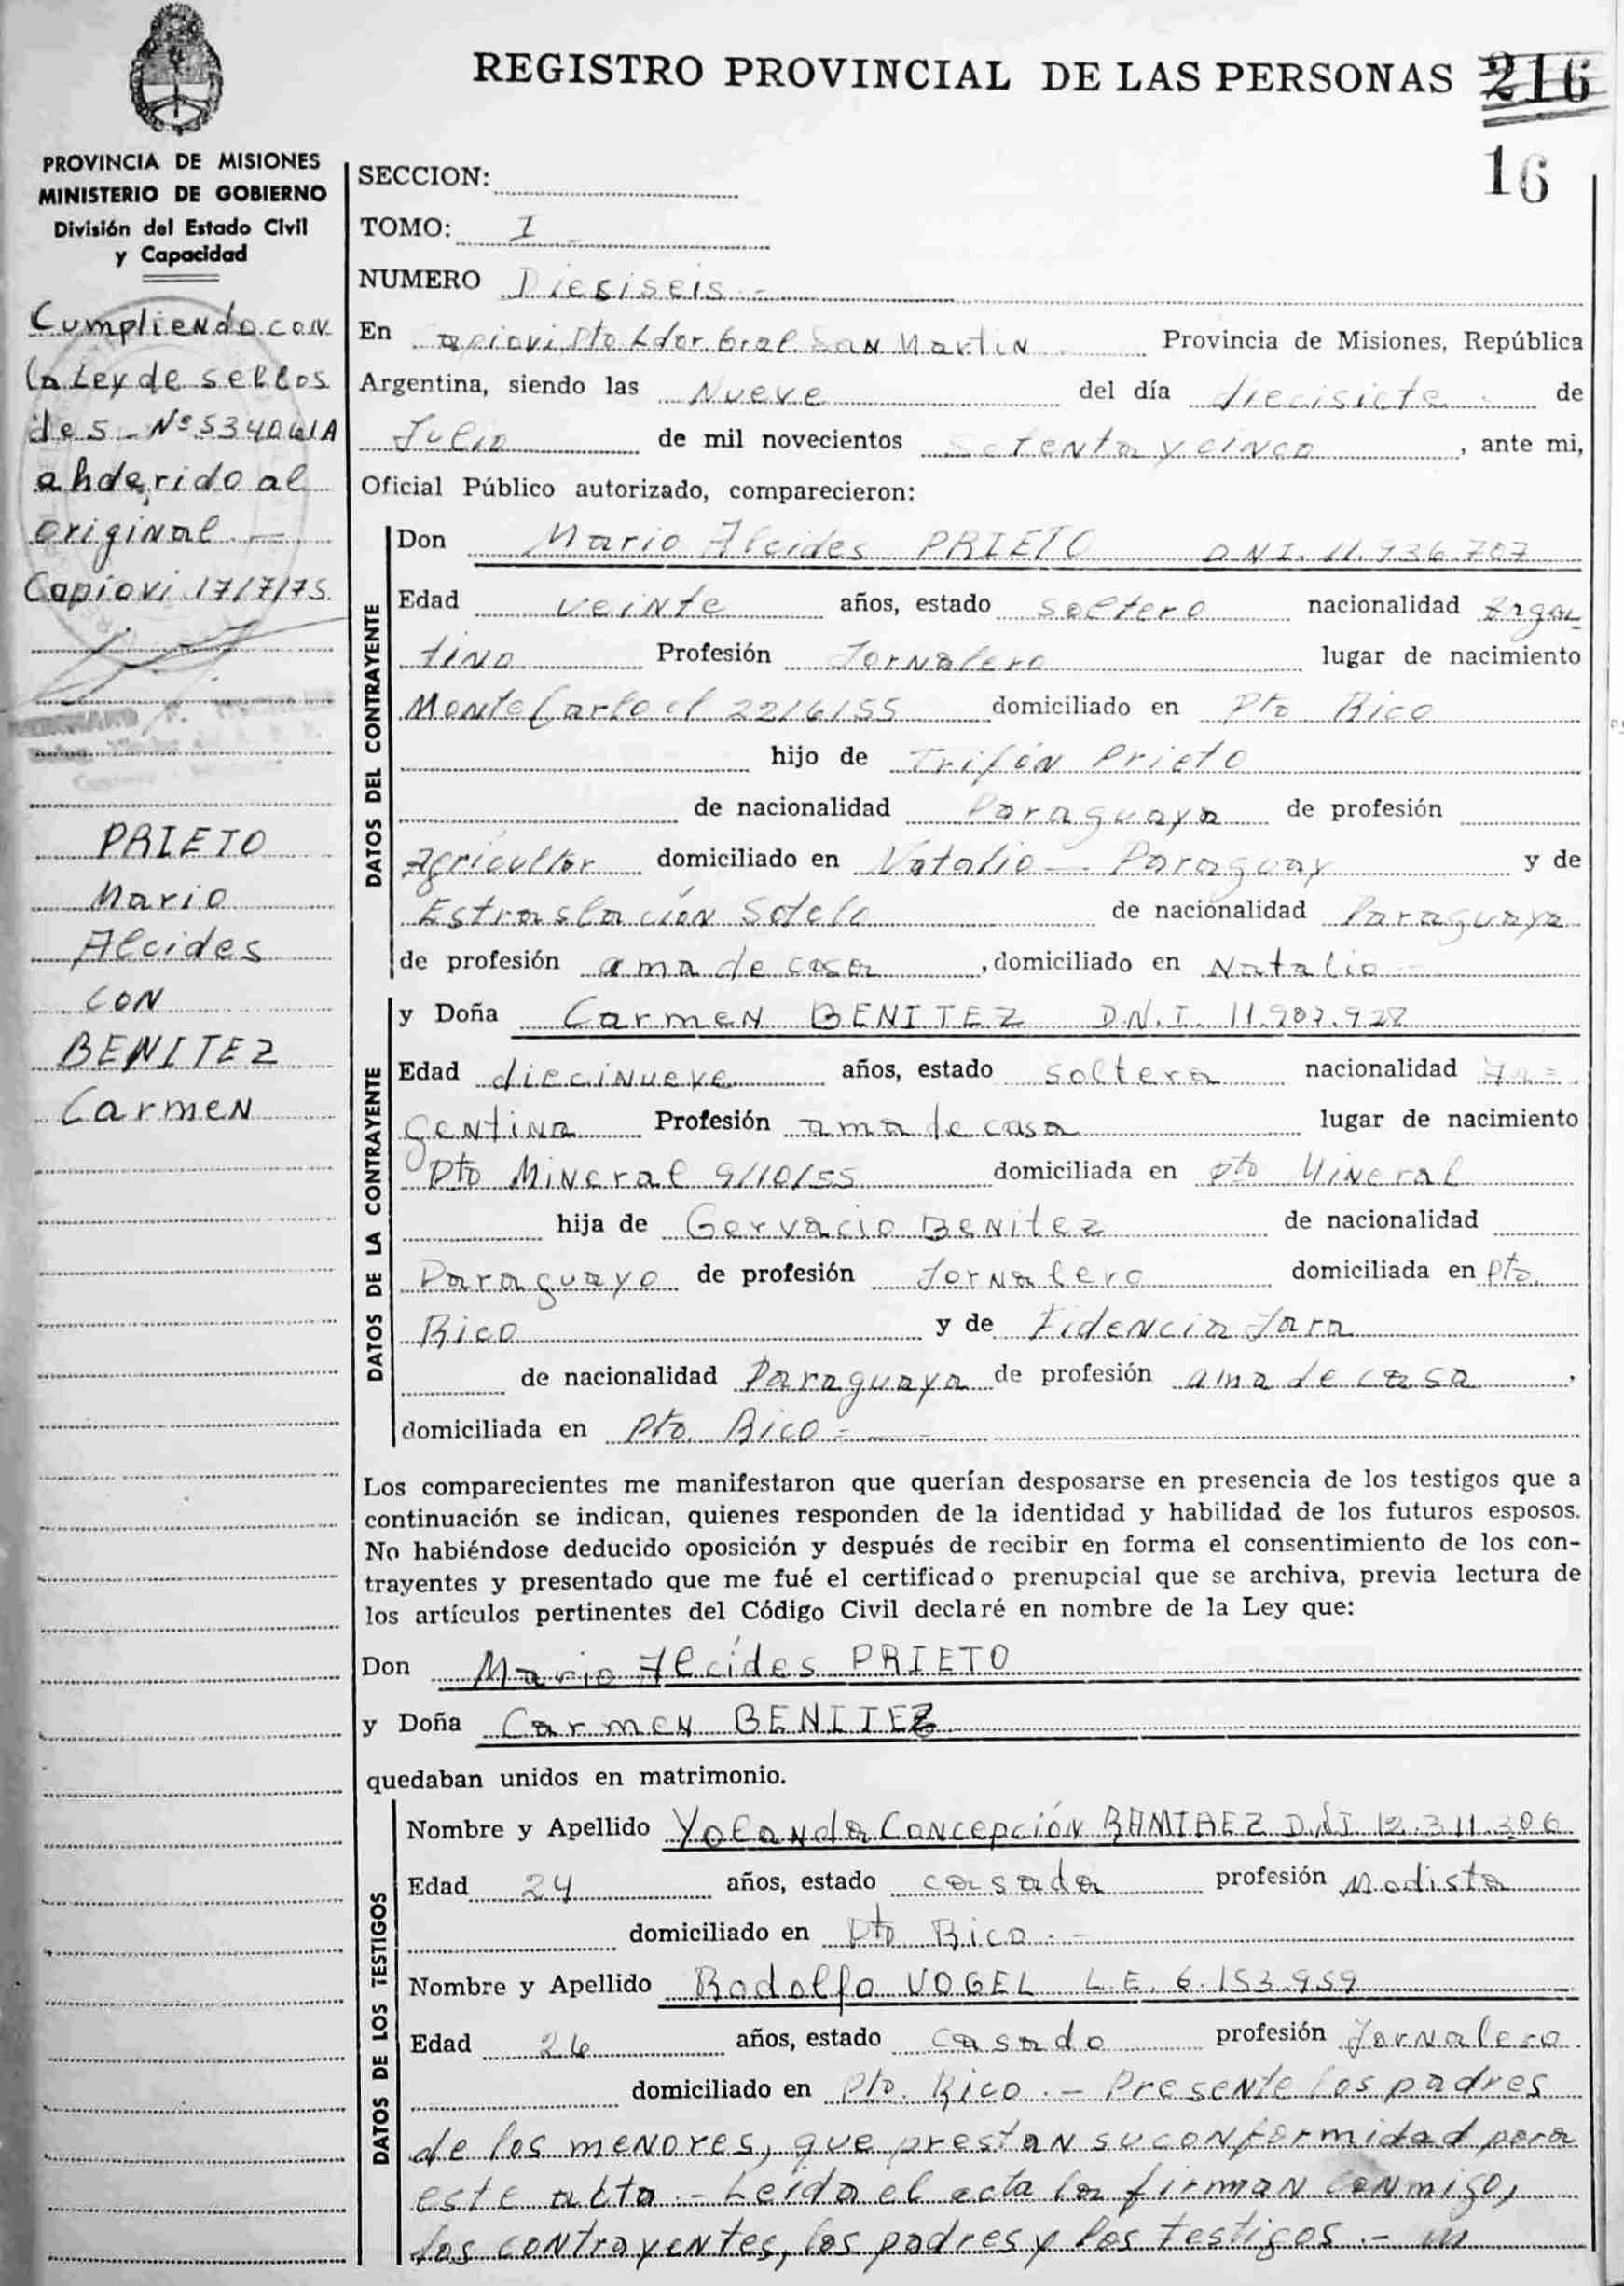 REGISTRO PROVINCIAL DE LAS PERSONAS 216
16
PROVINCIA DE MISIONES
MINISTERIO DE GOBIERNO
División del Estado Civil
y Capacidad
Cumpliendo con
la Ley de sellos
de 5 - Nº 534061A
ahderido al
original. -
Capiovi 17/7/75
PRIETO
Mario
Alcides
CON
BENITEZ
Carmen
SECCION:
TOMO: I
NUMERO Diesiseis -
En Capiovi, Pto Ldor. Gral. San Martin Provincia de Misiones, República
Argentina, siendo las Nueve del día diecisiete de
Julio de mil novecientos setenta y cinco, ante mi,
Oficial Público autorizado, comparecieron:
DATOS DEL CONTRAYENTE
Don Mario Alcides PRIETO D.N.I. 11.936.707
Edad veinte años, estado soltero nacionalidad Argen-
tino Profesión Jornalero lugar de nacimiento
Monte Carlo el 22/6/55 domiciliado en Pto Rico
hijo de Trifón Prieto
de nacionalidad Paraguaya de profesión
Agricultor domiciliado en Natalio - Paraguay y de
Estraslación Sotelo de nacionalidad Paraguaya
de profesión ama de casa, domiciliado en Natalio -
DATOS DE LA CONTRAYENTE
y Doña Carmen BENITEZ D.N.I. 11.987.928
Edad diecinueve años, estado soltera nacionalidad Ar=
gentina Profesión ama de casa lugar de nacimiento
Pto Mineral 9/10/55 domiciliada en Pto Mineral
hija de Gervacio Benitez de nacionalidad
Paraguayo de profesión Jornalero domiciliada en Pto.
Rico y de Fidencia Jara
de nacionalidad Paraguaya de profesión ama de casa,
domiciliada en Pto. Rico -
Los comparecientes me manifestaron que querían desposarse en presencia de los testigos que a
continuación se indican, quienes responden de la identidad y habilidad de los futuros esposos.
No habiéndose deducido oposición y después de recibir en forma el consentimiento de los con-
trayentes y presentado que me fué el certificado prenupcial que se archiva, previa lectura de
los artículos pertinentes del Código Civil declaré en nombre de la Ley que:
Don Mario Alcídes PRIETO
y Doña Carmen BENITEZ
quedaban unidos en matrimonio.
DATOS DE LOS TESTIGOS
Nombre y Apellido Yolanda Concepción RAMIREZ D.N.I 12.311.306
Edad 24 años, estado casada profesión Modista
domiciliado en Pto Rico. -
Nombre y Apellido Rodolfo VOGEL L.E. 6.153.959
Edad 26 años, estado casado profesión Jornalero.
domiciliado en Pto. Rico. - Presente los padres
de los menores, que prestan su conformidad para
este acto. - Leida el acta la firman conmigo,
los contrayentes, los padres y los testigos. -